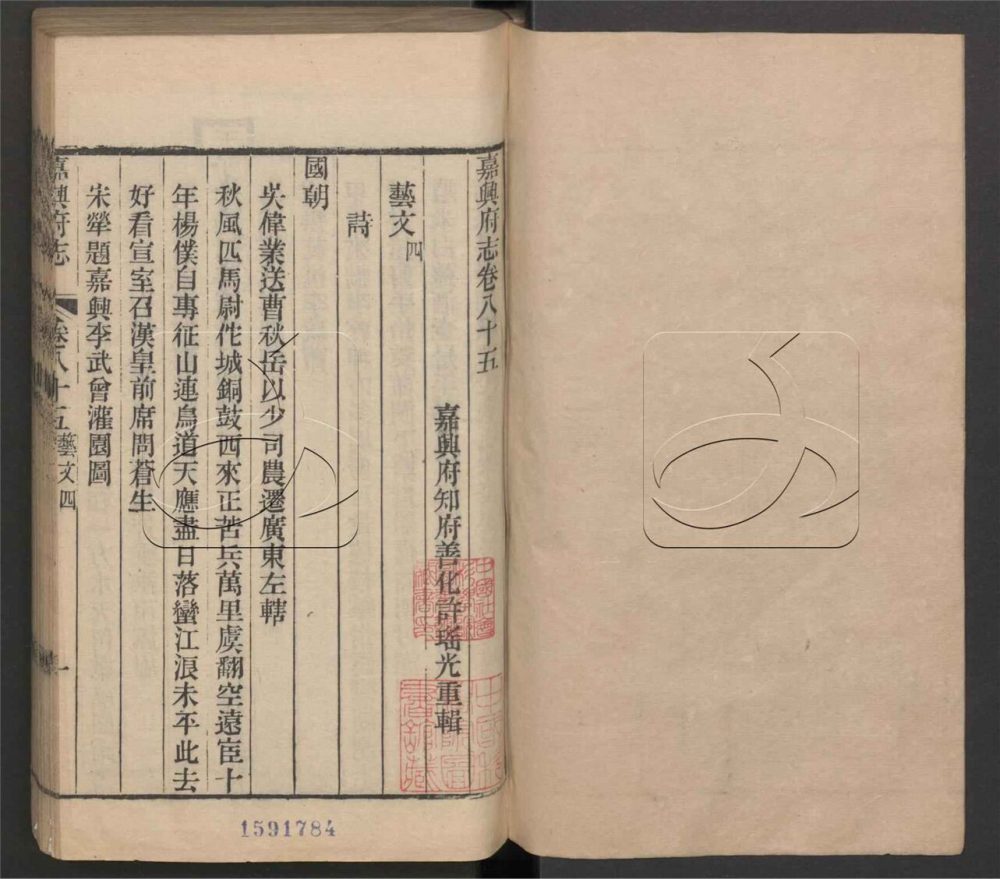 嘉興府志卷八十五
嘉興府知府善化許瑤光重輯
藝文四
詩
國朝
吳偉業送曹秋岳以少司農遷廣東左轄
秋風匹馬尉佗城銅鼓西來正苦兵萬里虞翻空遠宦十
年楊僕自專征山連鳥道天應盡日落蠻江浪未平此去
好看宣室召漢皇前席問蒼生
宋犖題嘉興李武曾灌園圖
嘉興府志 卷八十五 藝文四 一
1591784